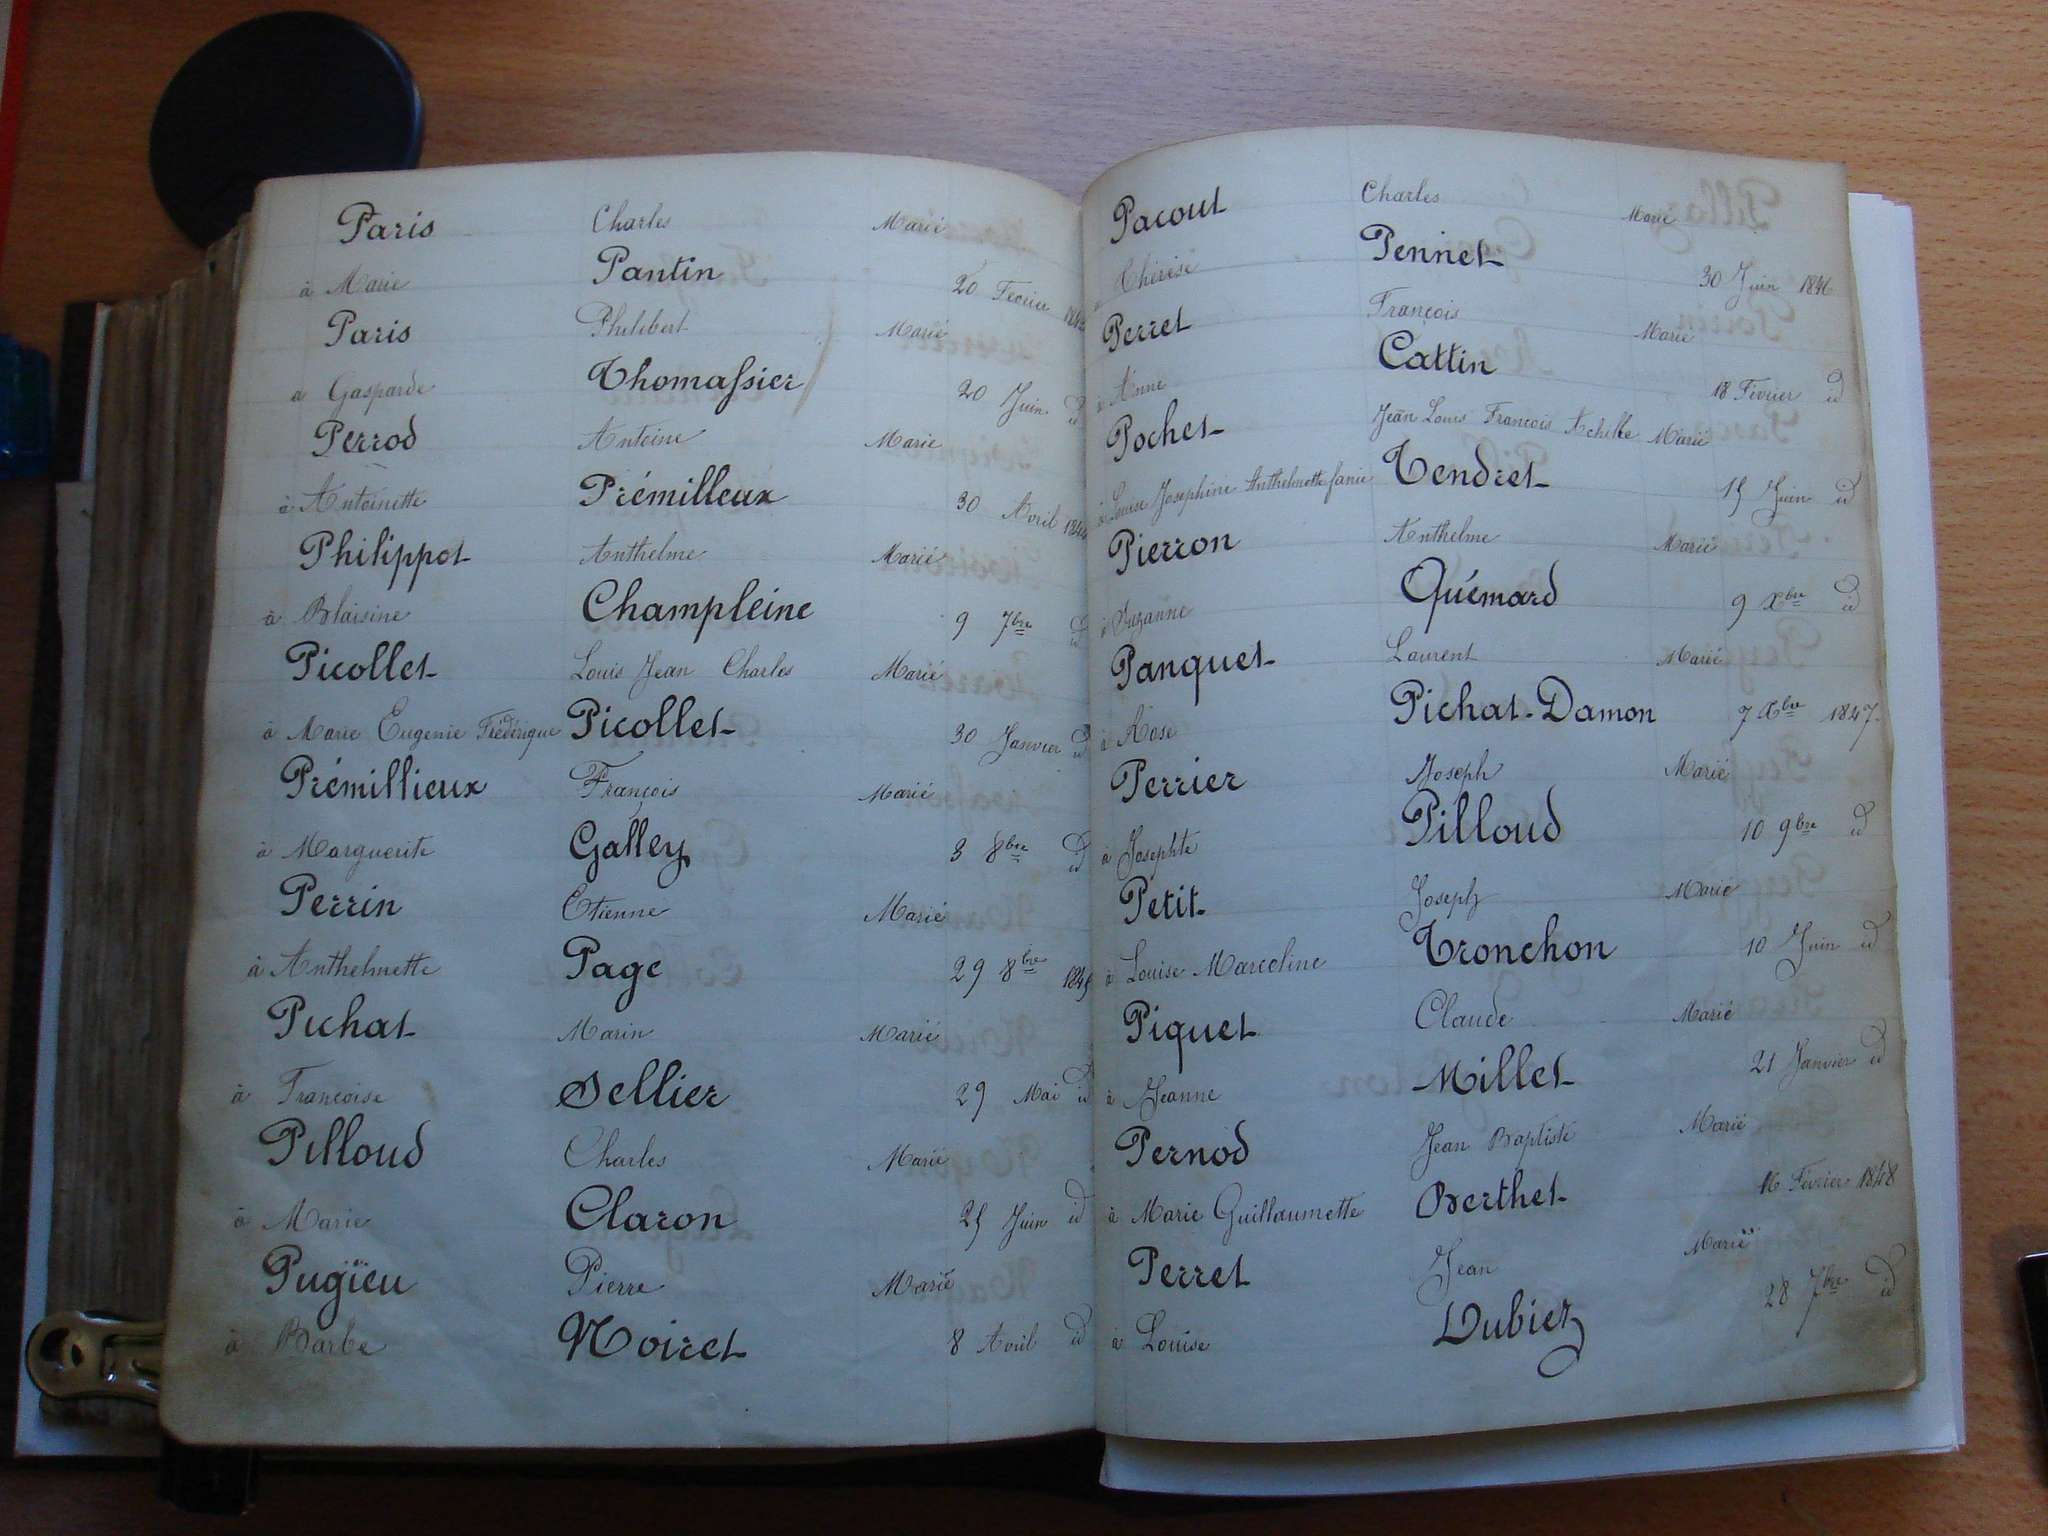 Paris Charles Marié
à Marie Pantin 20 Fevrier
Paris Philibert Marié
a Gasparde Thomassier 20 Juin id
Perrod Antoine Marie
à Antoinette Prémilleux 30 Avril 1844
Philippot Anthelme Marié
à Blaisine Champleine 9 7bre id
Picollet Louis Jean Charles Marié
à Marie Eugenie Frédérique Picollet 30 Janvier id
Prémillieux François Marié
à Marguerite Galley 3 8bre id
Perrin Etienne Marié
à Anthelmette Page 29 8bre 1845
Pichat Marin Marié
à Francoise Sellier 29 Mai id
Pilloud Charles Marié
à Marie Claron 25 Juin id
Pugïeu Pierre Marié
à Barbe Noiret 8 Avril id
Pacout Charles Marié
à Thérèse Pennet 30 Juin 1846
Perret François Marié
à Anne Cattin 18 Février id
Pochet Jean Louis François Achille Marié
à Louise Josephine Anthelmette fanie Tendret 15 Juin id
Pierron Anthelme Marié
à Suzanne Quémard 9 Xbre id
Panquet Laurent Marié
à Rose Pichat-Damon 7 Xbre 1847
Perrier Joseph Marié
à Josephte Pilloud 10 9bre id
Petit Joseph Marié
à Louise Marceline Tronchon 10 Juin id
Piquet Claude Marié
à Jeanne Millet 21 Janvier id
Pernod Jean Baptiste Marié
à Marie Guillaumette Berthet 16 Février 1848
Perret Jean Marié
à Louise Dubiez 28 7bre id